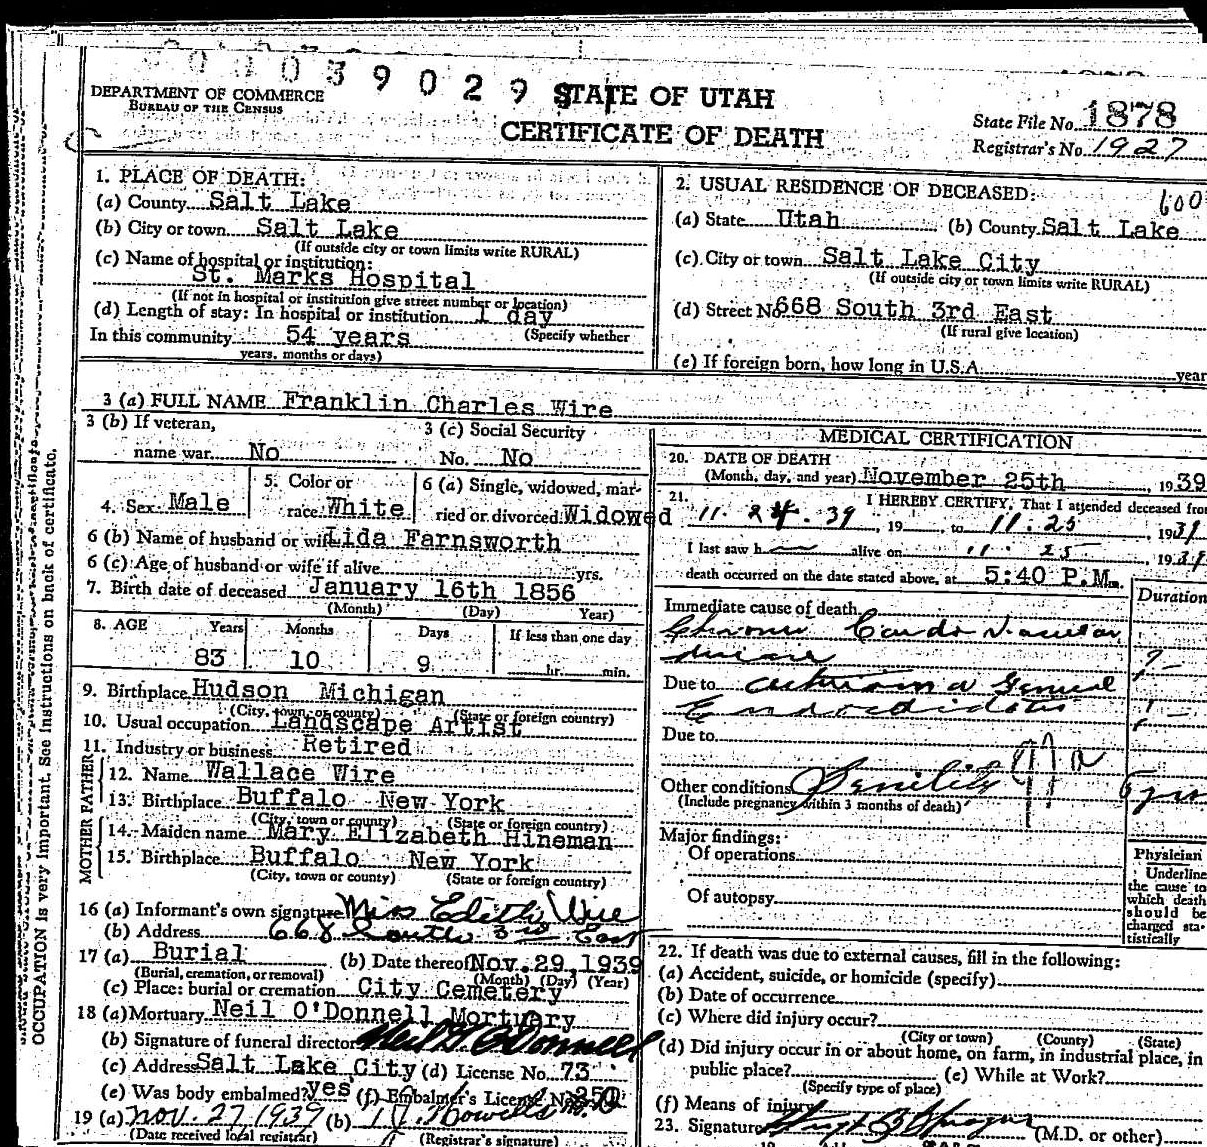 0 0 0 3 9 0 2 9
DEPARTMENT OF COMMERCE
BUREAU OF THE CENSUS
STATE OF UTAH
CERTIFICATE OF DEATH
State File No. 1878
Registrar's No. 1927
600
1. PLACE OF DEATH:
(a) County Salt Lake
(b) City or town Salt Lake
(If outside city or town limits write RURAL)
(c) Name of hospital or institution:
St. Marks Hospital
(If not in hospital or institution give street number or location)
(d) Length of stay: In hospital or institution 1 day
In this community 54 years (Specify whether
years, months or days)
2. USUAL RESIDENCE OF DECEASED:
(a) State Utah (b) County Salt Lake
(c) City or town Salt Lake City
(If outside city or town limits write RURAL)
(d) Street No 668 South 3rd East
(If rural give location)
(e) If foreign born, how long in U.S.A. year
3 (a) FULL NAME Franklin Charles Wire
3 (b) If veteran,
name war No
3 (c) Social Security
No. No
4. Sex Male
5. Color or
race White
6 (a) Single, widowed, mar-
ried or divorced Widowed
6 (b) Name of husband or wife Lida Farnsworth
6 (c) Age of husband or wife if alive yrs.
7. Birth date of deceased January 16th 1856
(Month) (Day) Year)
8. AGE Years Months Days If less than one day
83 10 9 hr. min.
9. Birthplace Hudson Michigan
(City, town, or county) (State or foreign country)
10. Usual occupation Landscape Artist
11. Industry or business Retired
FATHER
12. Name Wallace Wire
13. Birthplace Buffalo New York
(City, town or county) (State or foreign country)
MOTHER
14. Maiden name Mary Elizabeth Hineman
15. Birthplace Buffalo New York
(City, town or county) (State or foreign country)
16 (a) Informant's own signature Miss Edith Wire
(b) Address 668 South 3rd East
17 (a) Burial (b) Date thereof Nov. 29, 1939
(Burial, cremation, or removal) (Month) (Day) (Year)
(c) Place: burial or cremation City Cemetery
18 (a) Mortuary Neil O'Donnell Mortuary
(b) Signature of funeral director Neil O'Donnell
(c) Address Salt Lake City (d) License No. 73
(e) Was body embalmed? yes (f) Embalmer's License No
19 (a) Nov. 27, 1939 (b)
(Date received local registrar) (Registrar's signature)
MEDICAL CERTIFICATION
20. DATE OF DEATH
(Month, day, and year) November 25th, 1939
21. I HEREBY CERTIFY, That I attended deceased from
11. 24. 39, 19 to 11. 25, 1939
I last saw h alive on 11. 25 1939
death occurred on the date stated above, at 5:40 P.M.
Duration
Immediate cause of death
Chronic Cardio Vascular
disease
Due to
Due to
Other conditions Senility
(Include pregnancy within 3 months of death)
Major findings:
Of operations
Of autopsy
Physician
Underline
the cause to
which death
should be
charged sta-
tistically
22. If death was due to external causes, fill in the following:
(a) Accident, suicide, or homicide (specify)
(b) Date of occurrence
(c) Where did injury occur?
(City or town) (County) (State)
(d) Did injury occur in or about home, on farm, in industrial place, in
public place? (e) While at Work?
(Specify type of place)
(f) Means of injury
23. Signature (M.D. or other)
OCCUPATION is very important. See instructions on back of certificate.